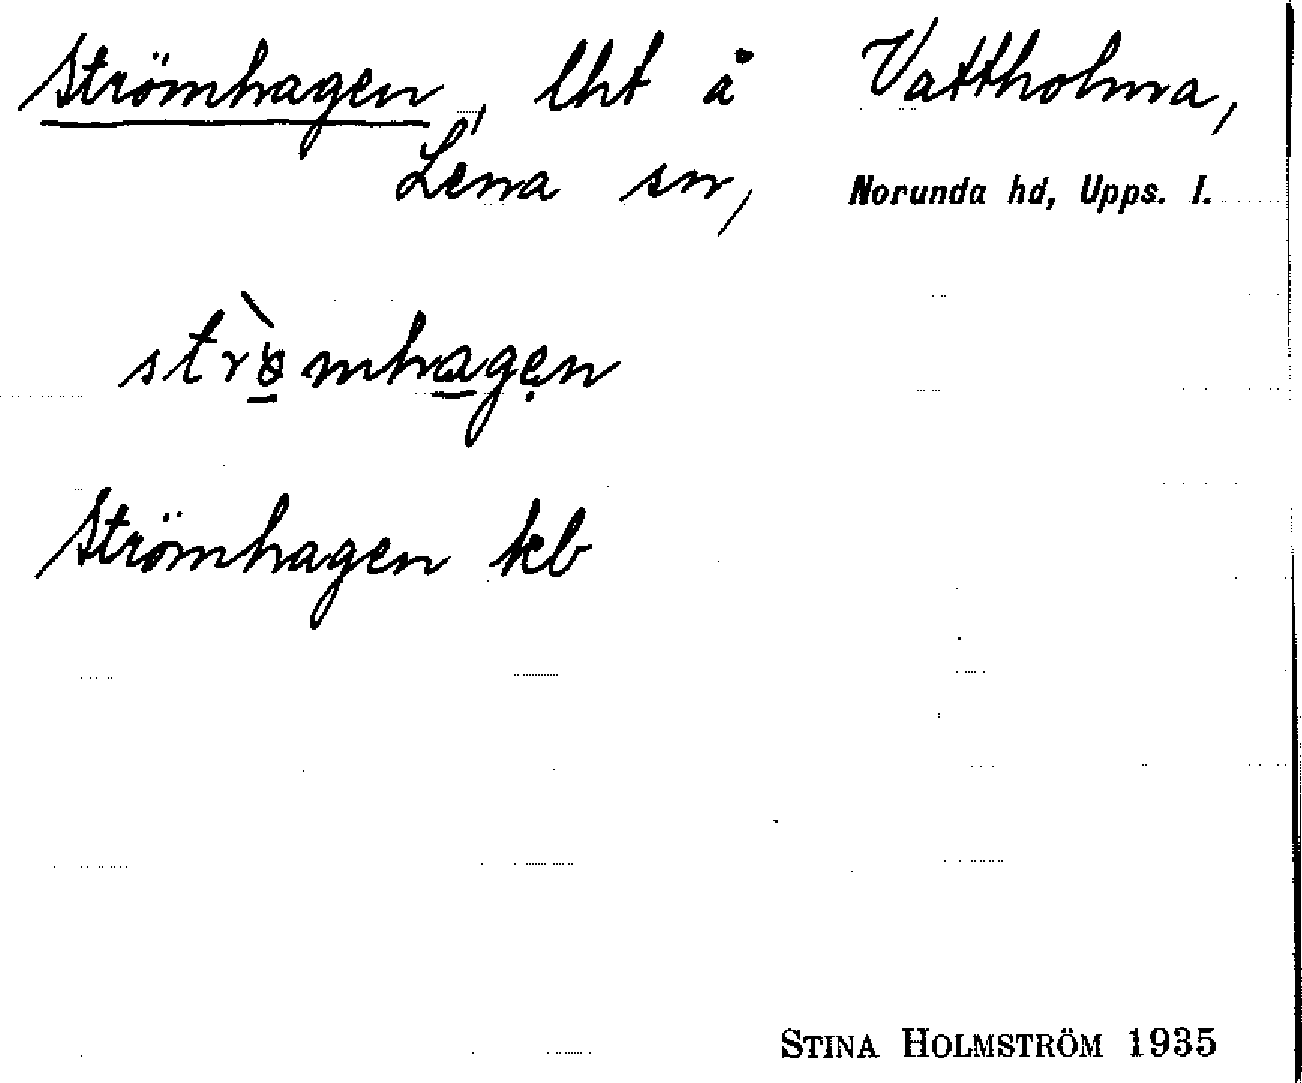 Strömhagen, lht å Vattholma,
Lena sn, Norunda hd, Upps. l.
strö̀mhagẹn
Strömhagen kb
STINA HOLMSTRÖM 1935